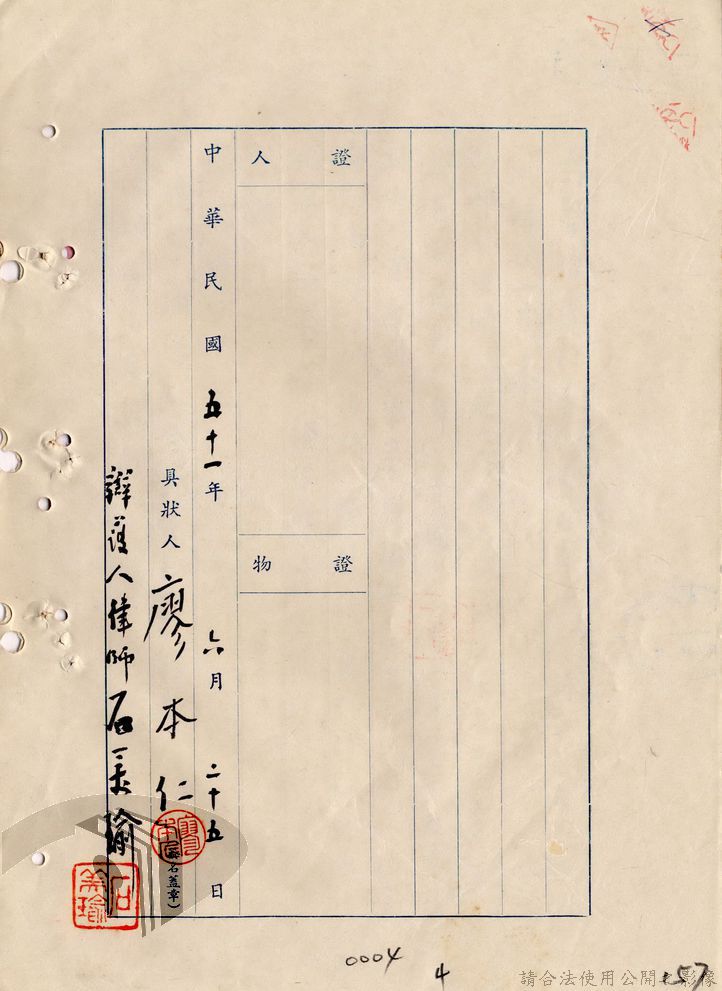 證人
證物
中華民國五十一年六月二十五日
具狀人廖本仁
（簽名蓋章）
辯護人律師石美瑜
廖本仁
石美瑜
0004
4
157
請合法使用公開之影像